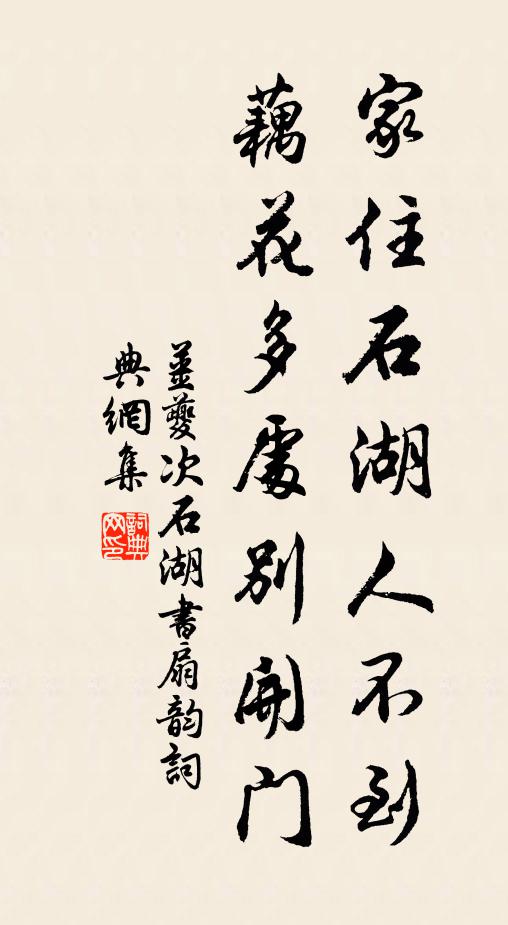 家住石湖人不到
藕花多處別開門
姜夔次石湖書扇韵詞
典網集
詞典
网印